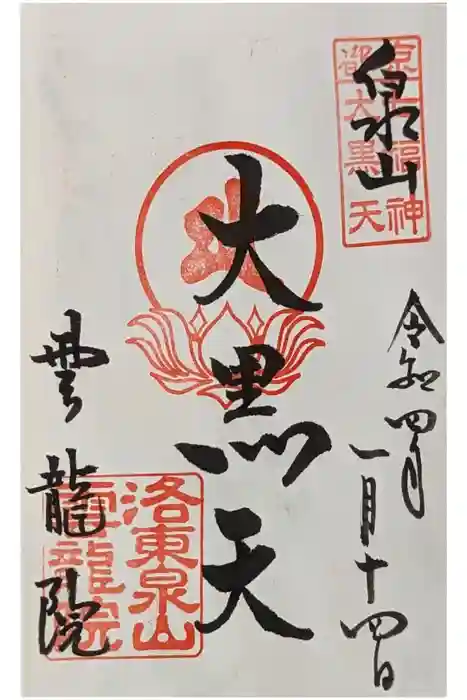 泉山
京都
七福神
大黒天
令和四年
一月十四日
大黒天
雲龍院
洛東泉山
雲龍院